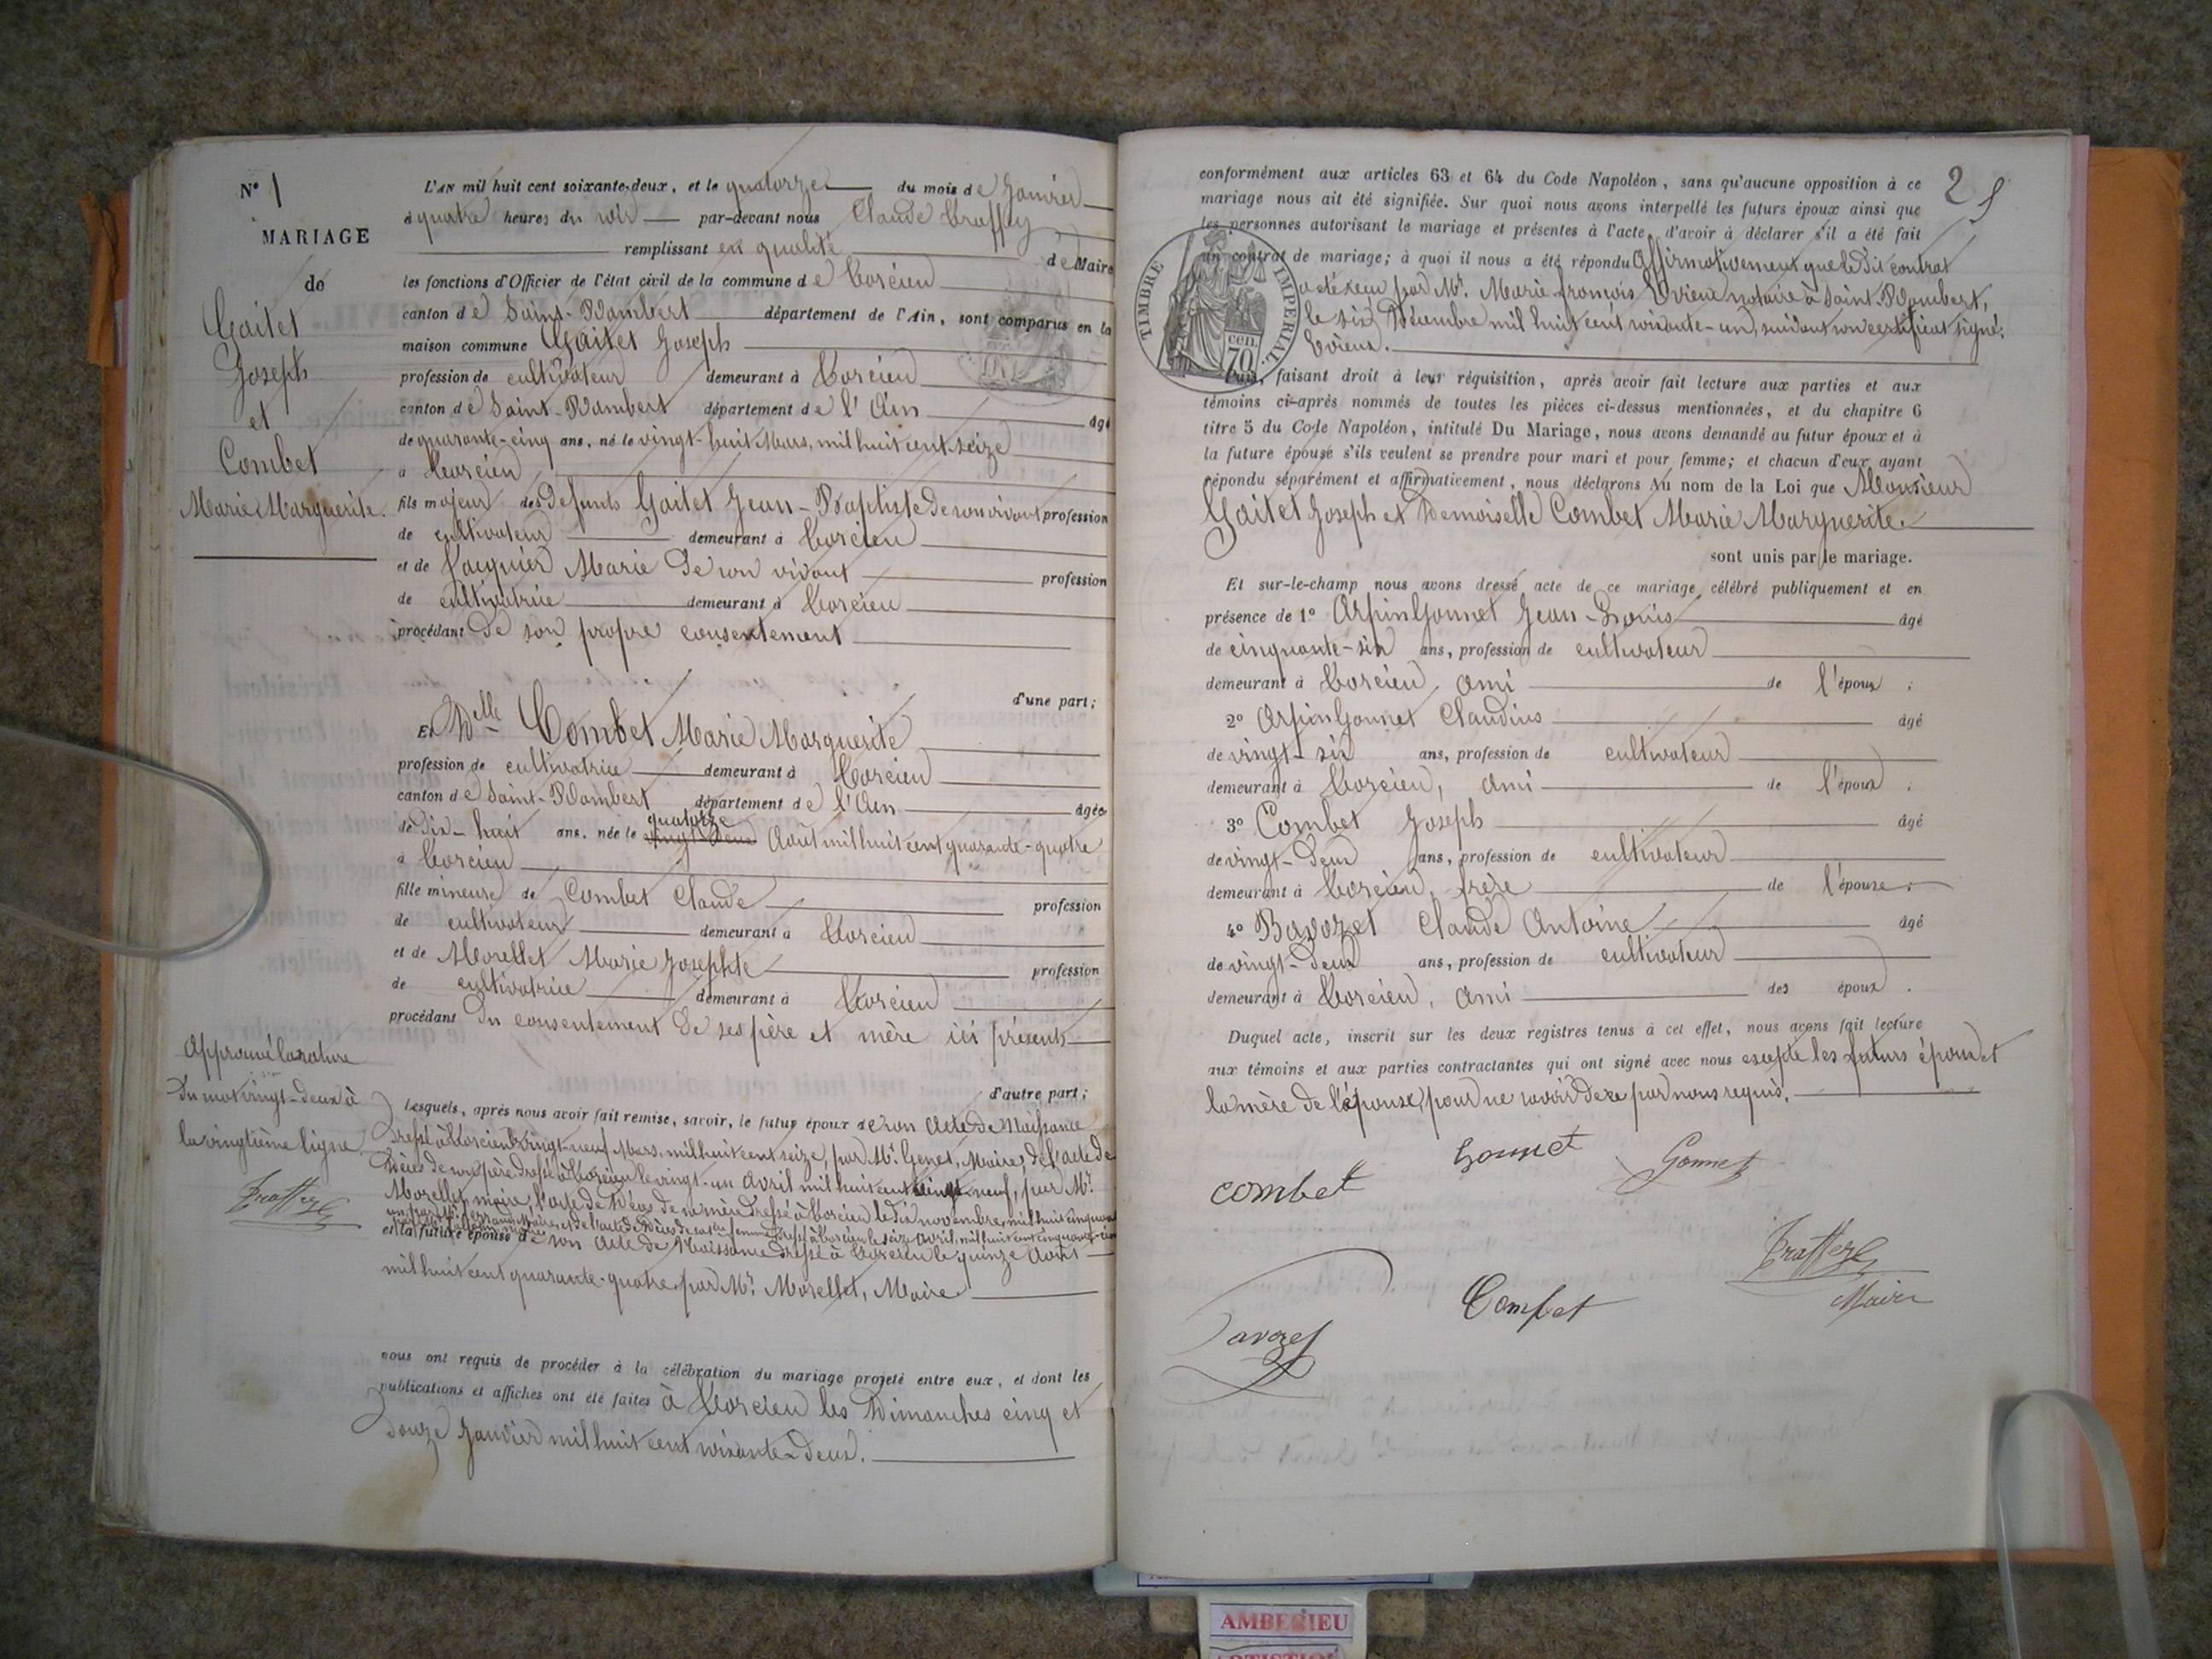 N° 1
MARIAGE
de
Gaitet
Joseph
et
Combet
Marie Marguerite.
L'AN mil huit cent soixante-deux, et le quatorze du mois de Janvier
à quatre heures du soir par-devant nous Claude Traffey
remplissant en qualité de Maire
les fonctions d'Officier de l'état civil de la commune de Torcieu
canton de Saint-Rambert département de l'Ain, sont comparus en la
maison commune Gaitet Joseph
profession de cultivateur demeurant à Torcieu
canton de Saint-Rambert département de l'Ain âgé
de quarante-cinq ans, né le vingt-huit Mars, mil huit cent seize
à Torcieu
fils majeur des Defunts Gaitet Jean-Baptiste de son vivant profession
de cultivateur demeurant à Torcieu
et de Jacquier Marie de son vivant profession
de cultivatrice demeurant à Torcieu
procédant de son propre consentement
d'une part;
Et Delle Combet Marie Marguerite
profession de cultivatrice demeurant à Torcieu
canton de Saint-Rambert département de l'Ain âgée
quatorze
de dix-huit ans, née le vingt deux Août mil huit cent quarante-quatre
à Torcieu
fille mineure de Combet Claude profession
de cultivateur demeurant à Torcieu
et de Morellet Marie Josephte profession
de cultivatrice demeurant à Torcieu
procédant du consentement de ses père et mère ici présents
d'autre part;
Approuvé la rature
du mot vingt-deux à
la vingtième ligne
Lesquels, après nous avoir fait remise, savoir, le futur époux de son Acte de Naissance
dressé à Torcieu le vingt-neuf Mars, mil huit cent seize, par Mr. Genet, Maire, de l'acte de
Décès de son père dressé à Torcieu le vingt-un avril mil huit cent neuf, par Mr.
Morellet, maire, l'acte de Décès de sa mère dressé à Torcieu le dix novembre, mil huit cinquante
et la future épouse de son Acte de Naissance dressé à Torcieu le quinze Août
mil huit cent quarante-quatre par Mr. Morellet, Maire
nous ont requis de procéder à la célébration du mariage projeté entre eux, et dont les
publications et affiches ont été faites à Torcieu les Dimanches cinq et
douze Janvier mil huit cent soixante-deux.
2
conformément aux articles 63 et 64 du Code Napoléon, sans qu'aucune opposition à ce
mariage nous ait été signifiée. Sur quoi nous avons interpellé les futurs époux ainsi que
les personnes autorisant le mariage et présentes à l'acte, d'avoir à déclarer s'il a été fait
un contrat de mariage; à quoi il nous a été répondu Affirmativement que le dit contrat
a été reçu par Mr. Marie-François Evieux notaire à Saint-Rambert,
le six Décembre mil huit cent soixante-un, suivant son certificat signé:
Evieux.
TIMBRE IMPERIAL.
70 cen.
Puis, faisant droit à leur réquisition, après avoir fait lecture aux parties et aux
témoins ci-après nommés de toutes les pièces ci-dessus mentionnées, et du chapitre 6
titre 5 du Code Napoléon, intitulé Du Mariage, nous avons demandé au futur époux et à
la future épouse s'ils veulent se prendre pour mari et pour femme; et chacun d'eux ayant
répondu séparément et affirmativement, nous déclarons Au nom de la Loi que Monsieur
Gaitet Joseph et Demoiselle Combet Marie Marguerite.
sont unis par le mariage.
Et sur-le-champ nous avons dressé acte de ce mariage célébré publiquement et en
présence de 1° Arpin Gonnet Jean-Louis âgé
de cinquante-six ans, profession de cultivateur
demeurant à Torcieu, ami de l'époux;
2° Arpin Gonnet Claudius âgé
de vingt-six ans, profession de cultivateur
demeurant à Torcieu, ami de l'époux;
3° Combet Joseph âgé
de vingt-deux ans, profession de cultivateur
demeurant à Torcieu, frère de l'épouse;
4° Bavozet Claude Antoine âgé
de vingt-deux ans, profession de cultivateur
demeurant à Torcieu, ami des époux.
Duquel acte, inscrit sur les deux registres tenus à cet effet, nous avons fait lecture
aux témoins et aux parties contractantes qui ont signé avec nous excepté les futurs époux et
la mère de l'épouse, pour ne savoir de ce par nous requis.
combet
Gonnet
Gonnet
Combet
Maire
AMBERIEU